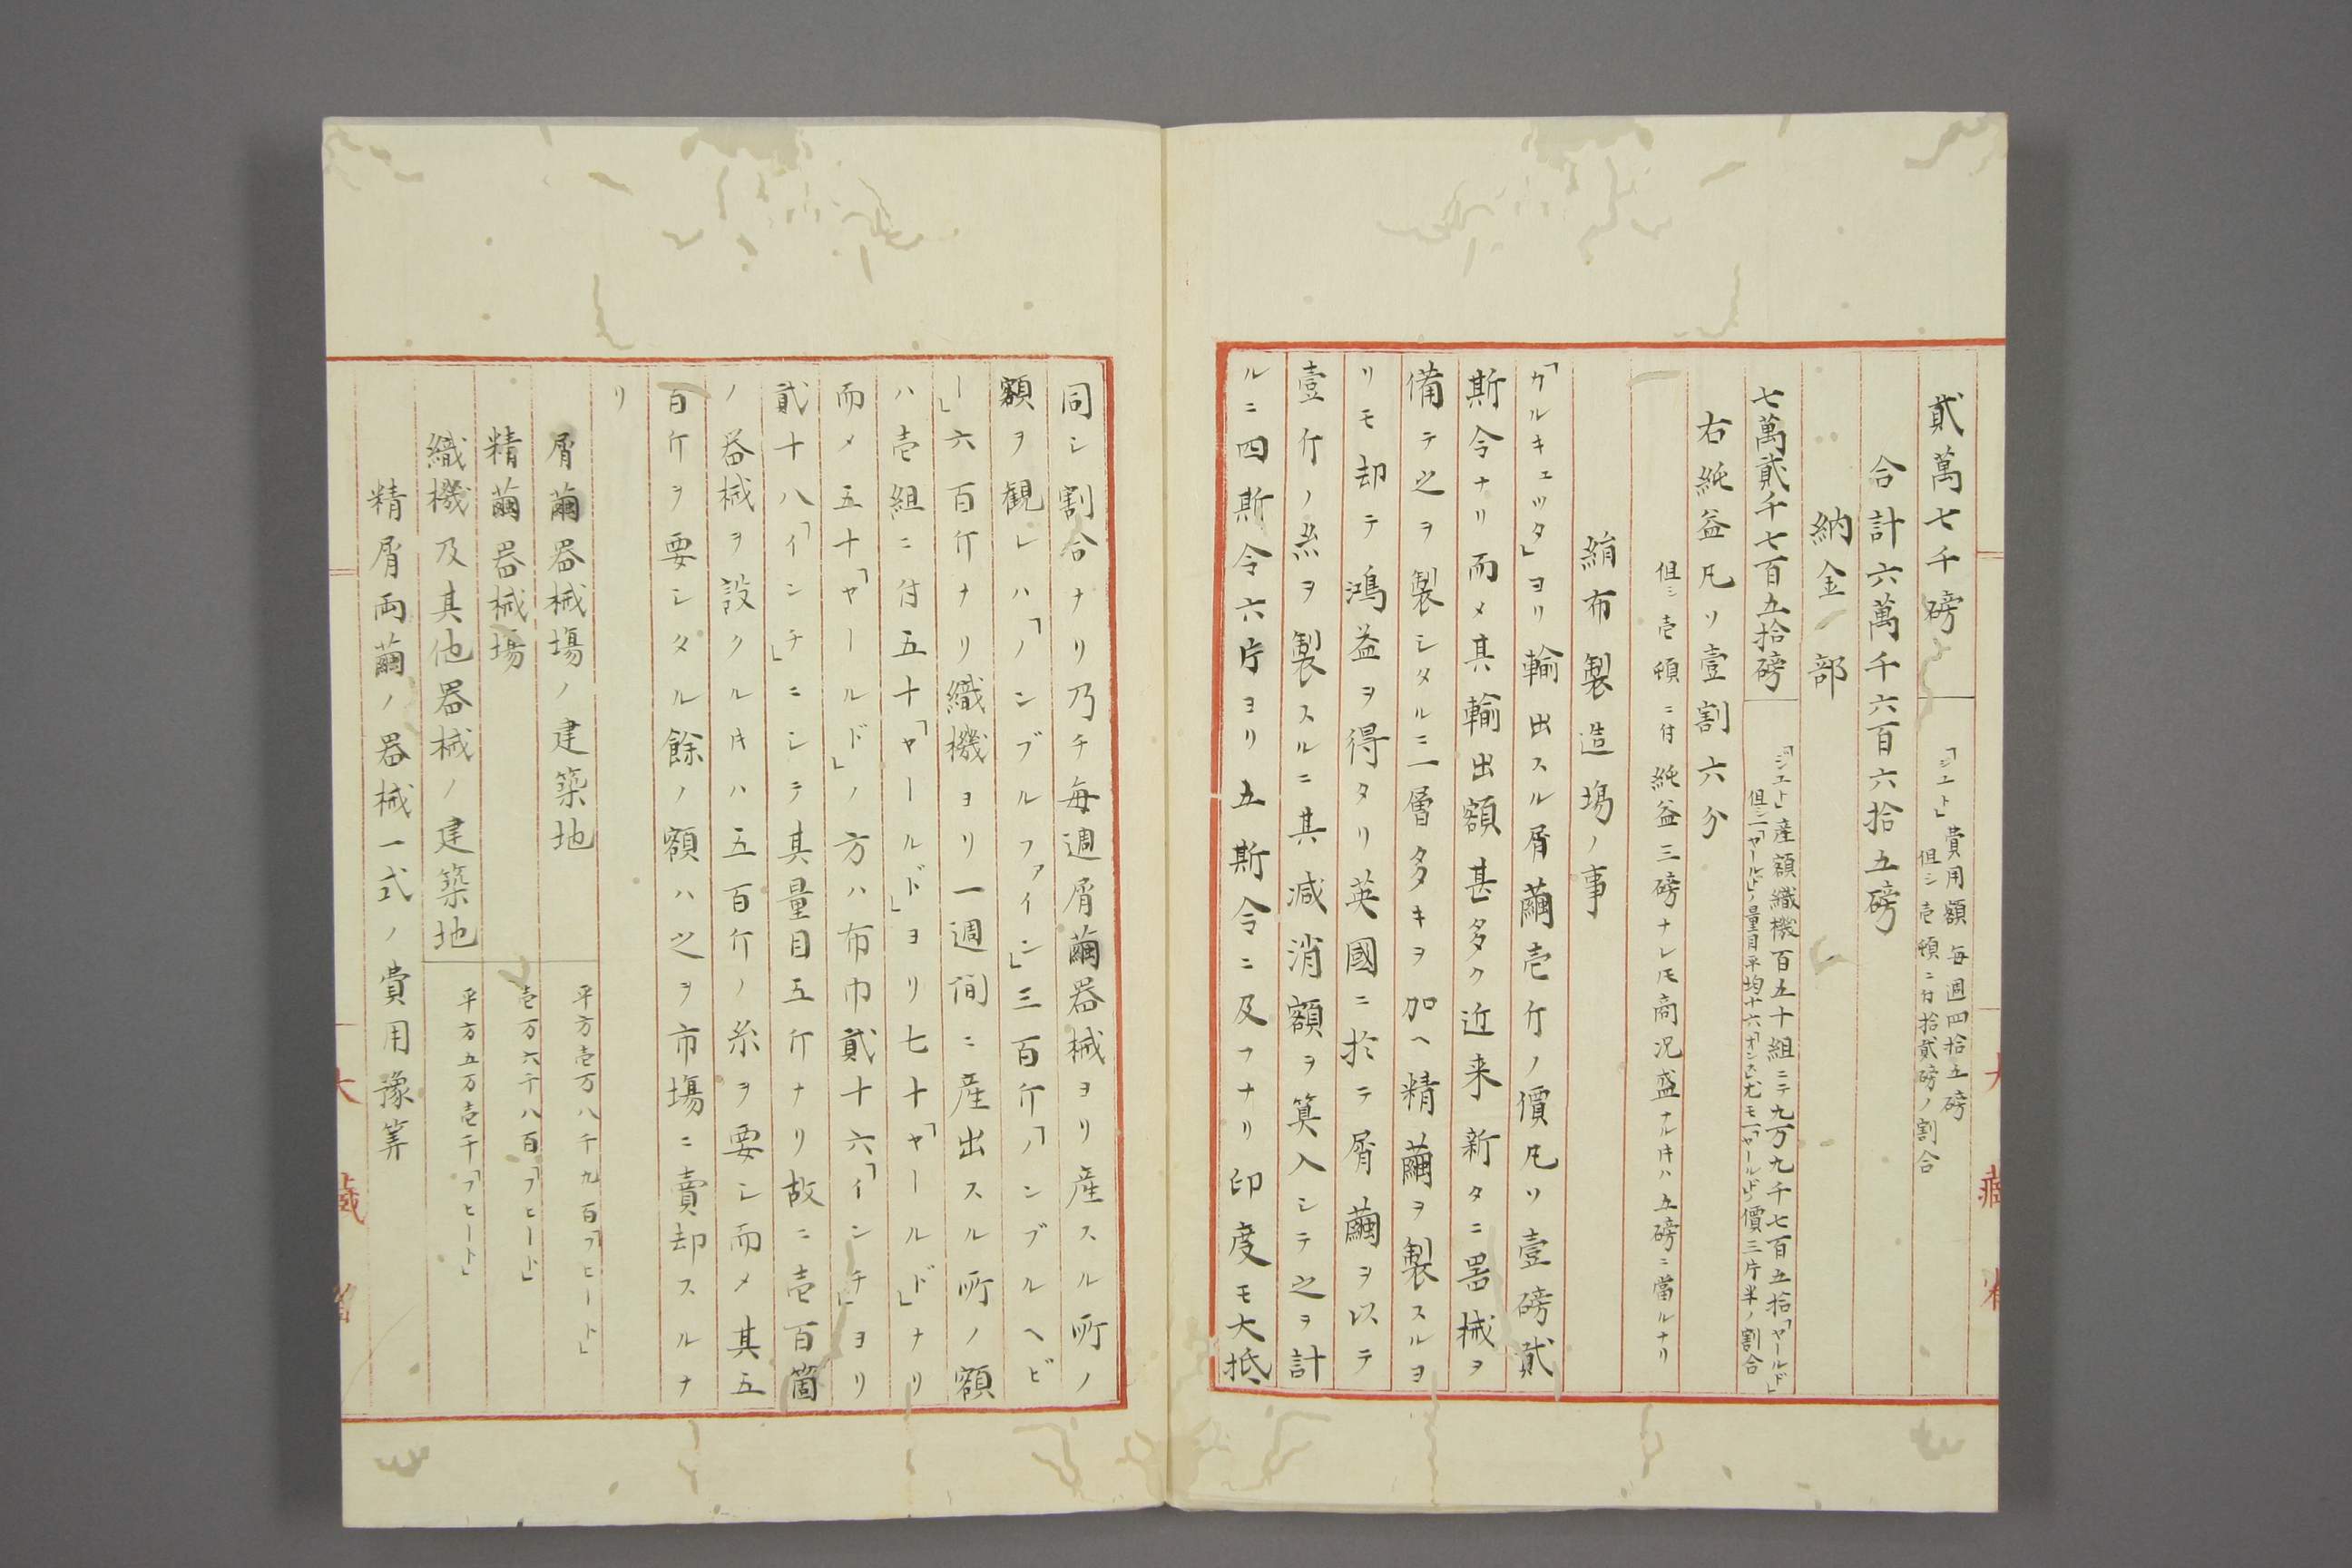 貳萬七千磅
「ジユト」費用額毎週四拾五磅
但シ壱頓ニ付拾貳磅ノ割合
合計六萬千六百六拾五磅
納金部
七萬貳千七百五拾磅
「ジユト」産額織機百五十組ニテ九万九千七百五拾「ヤールド」
但シ一「ヤールド」ノ量目平均十六「オンス」尤モ一「ヤールド」價三片半ノ割合
右純益凡ソ壹割六分
但シ壱頓ニ付純益三磅ナレ𪜈商况盛ナル𪜈ハ五磅ニ當ルナリ
絹布製造場ノ事
「カルキユツタ」ヨリ輸出スル屑繭壱斤ノ價凡ソ壹磅貳
斯令ナリ而メ其輸出額甚多ク近来新タニ噐械ヲ
備テ之ヲ製シタルニ一層多キヲ加ヘ精繭ヲ製スルヨ
リモ却テ鴻益ヲ得タリ英國ニ於テ屑繭ヲ以テ
壹斤ノ糸ヲ製スルニ其减消額ヲ算入シテ之ヲ計
ルニ四斯令六片ヨリ五斯令ニ及フナリ印度モ大抵
同シ割合ナリ乃チ毎週屑繭器械ヨリ産スル所ノ
額ヲ観レハ「ノンブルファイン」三百斤「ノンブルヘビ
ー」六百斤ナリ織機ヨリ一週间ニ産出スル所ノ額
ハ壱組ニ付五十「ヤールド」ヨリ七十「ヤールド」ナリ
而メ五十「ヤールド」ノ方ハ布巾貳十六「インチ」ヨリ
貳十八「インチ」ニシテ其量目五斤ナリ故ニ壱百箇
ノ器械ヲ設クル𪜈ハ五百斤ノ糸ヲ要シ而メ其五
百斤ヲ要シタル餘ノ額ハ之ヲ市塲ニ賣却スルナ
リ
屑繭器械塲ノ建築地
平方壱万八千九百「フヒート」
精繭器械塲
壱万六千八百「フヒート」
織機及其他器械ノ建築地
平方五万壱千「フヒート」
精屑両繭ノ器械一式ノ費用豫筭
大藏省